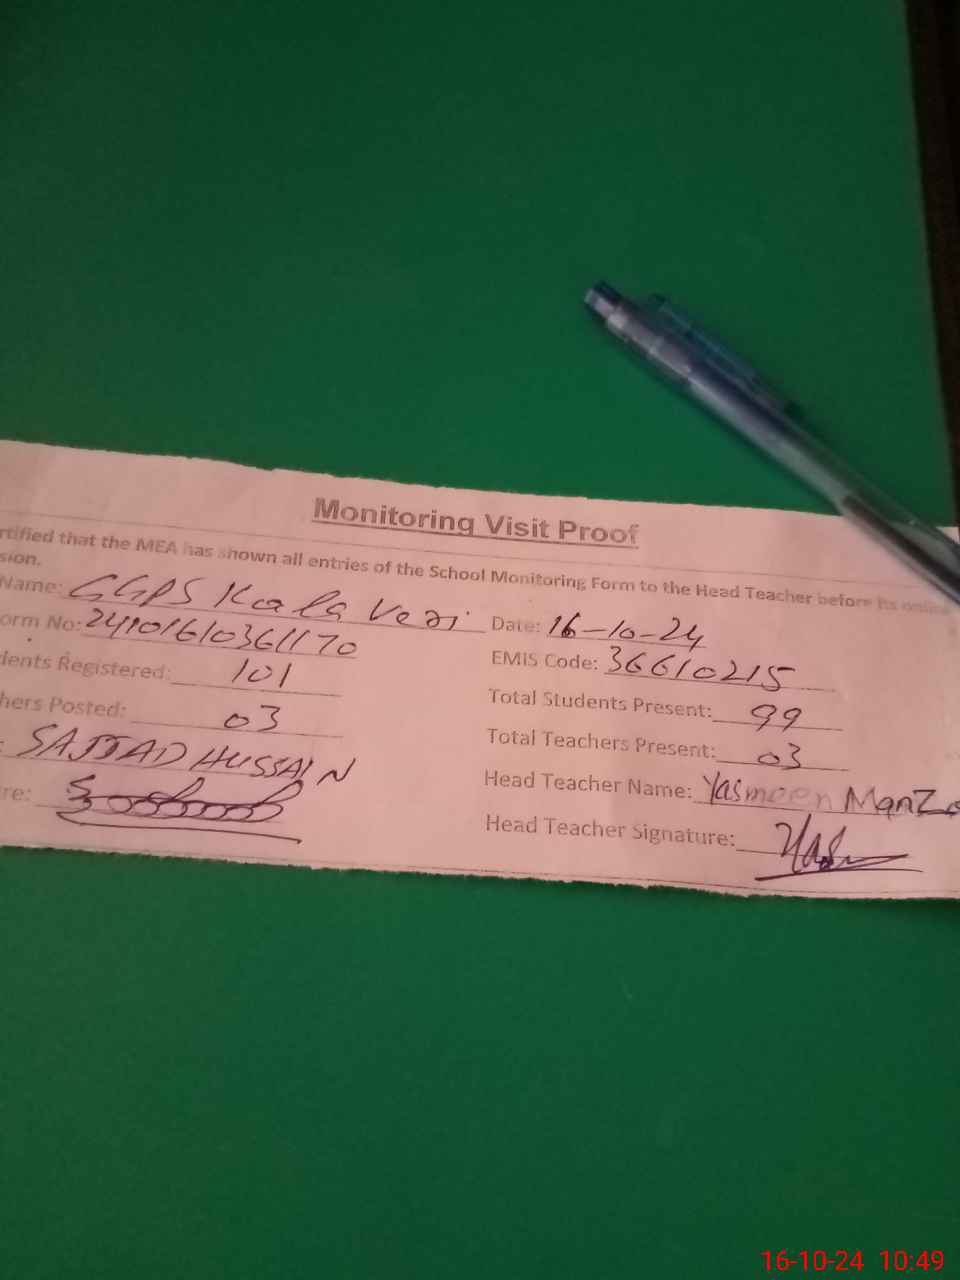 Monitoring Visit Proof
rtified that the MEA has shown all entries of the School Monitoring Form to the Head Teacher before its online
sion.
Name: GGPS Kala Veri Date: 16-10-24
orm No: 24101610361170 EMIS Code: 36610215
dents Registered: 101 Total Students Present: 99
hers Posted: 03 Total Teachers Present: 03
: SAJJAD HUSSAIN Head Teacher Name: Yasmeen Manzo
re: Head Teacher Signature:
16-10-24 10:49